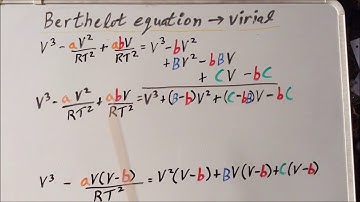 Berthelot equation → virial
V³ - aV²/RT² + abV/RT² = V³ - bV²
+ BV² - bBV
+ CV - bC
V³ - aV²/RT² + abV/RT² = V³ + (B-b)V² + (C-bB)V - bC
V³ - aV(V-b)/RT² = V²(V-b) + BV(V-b) + C(V-b)